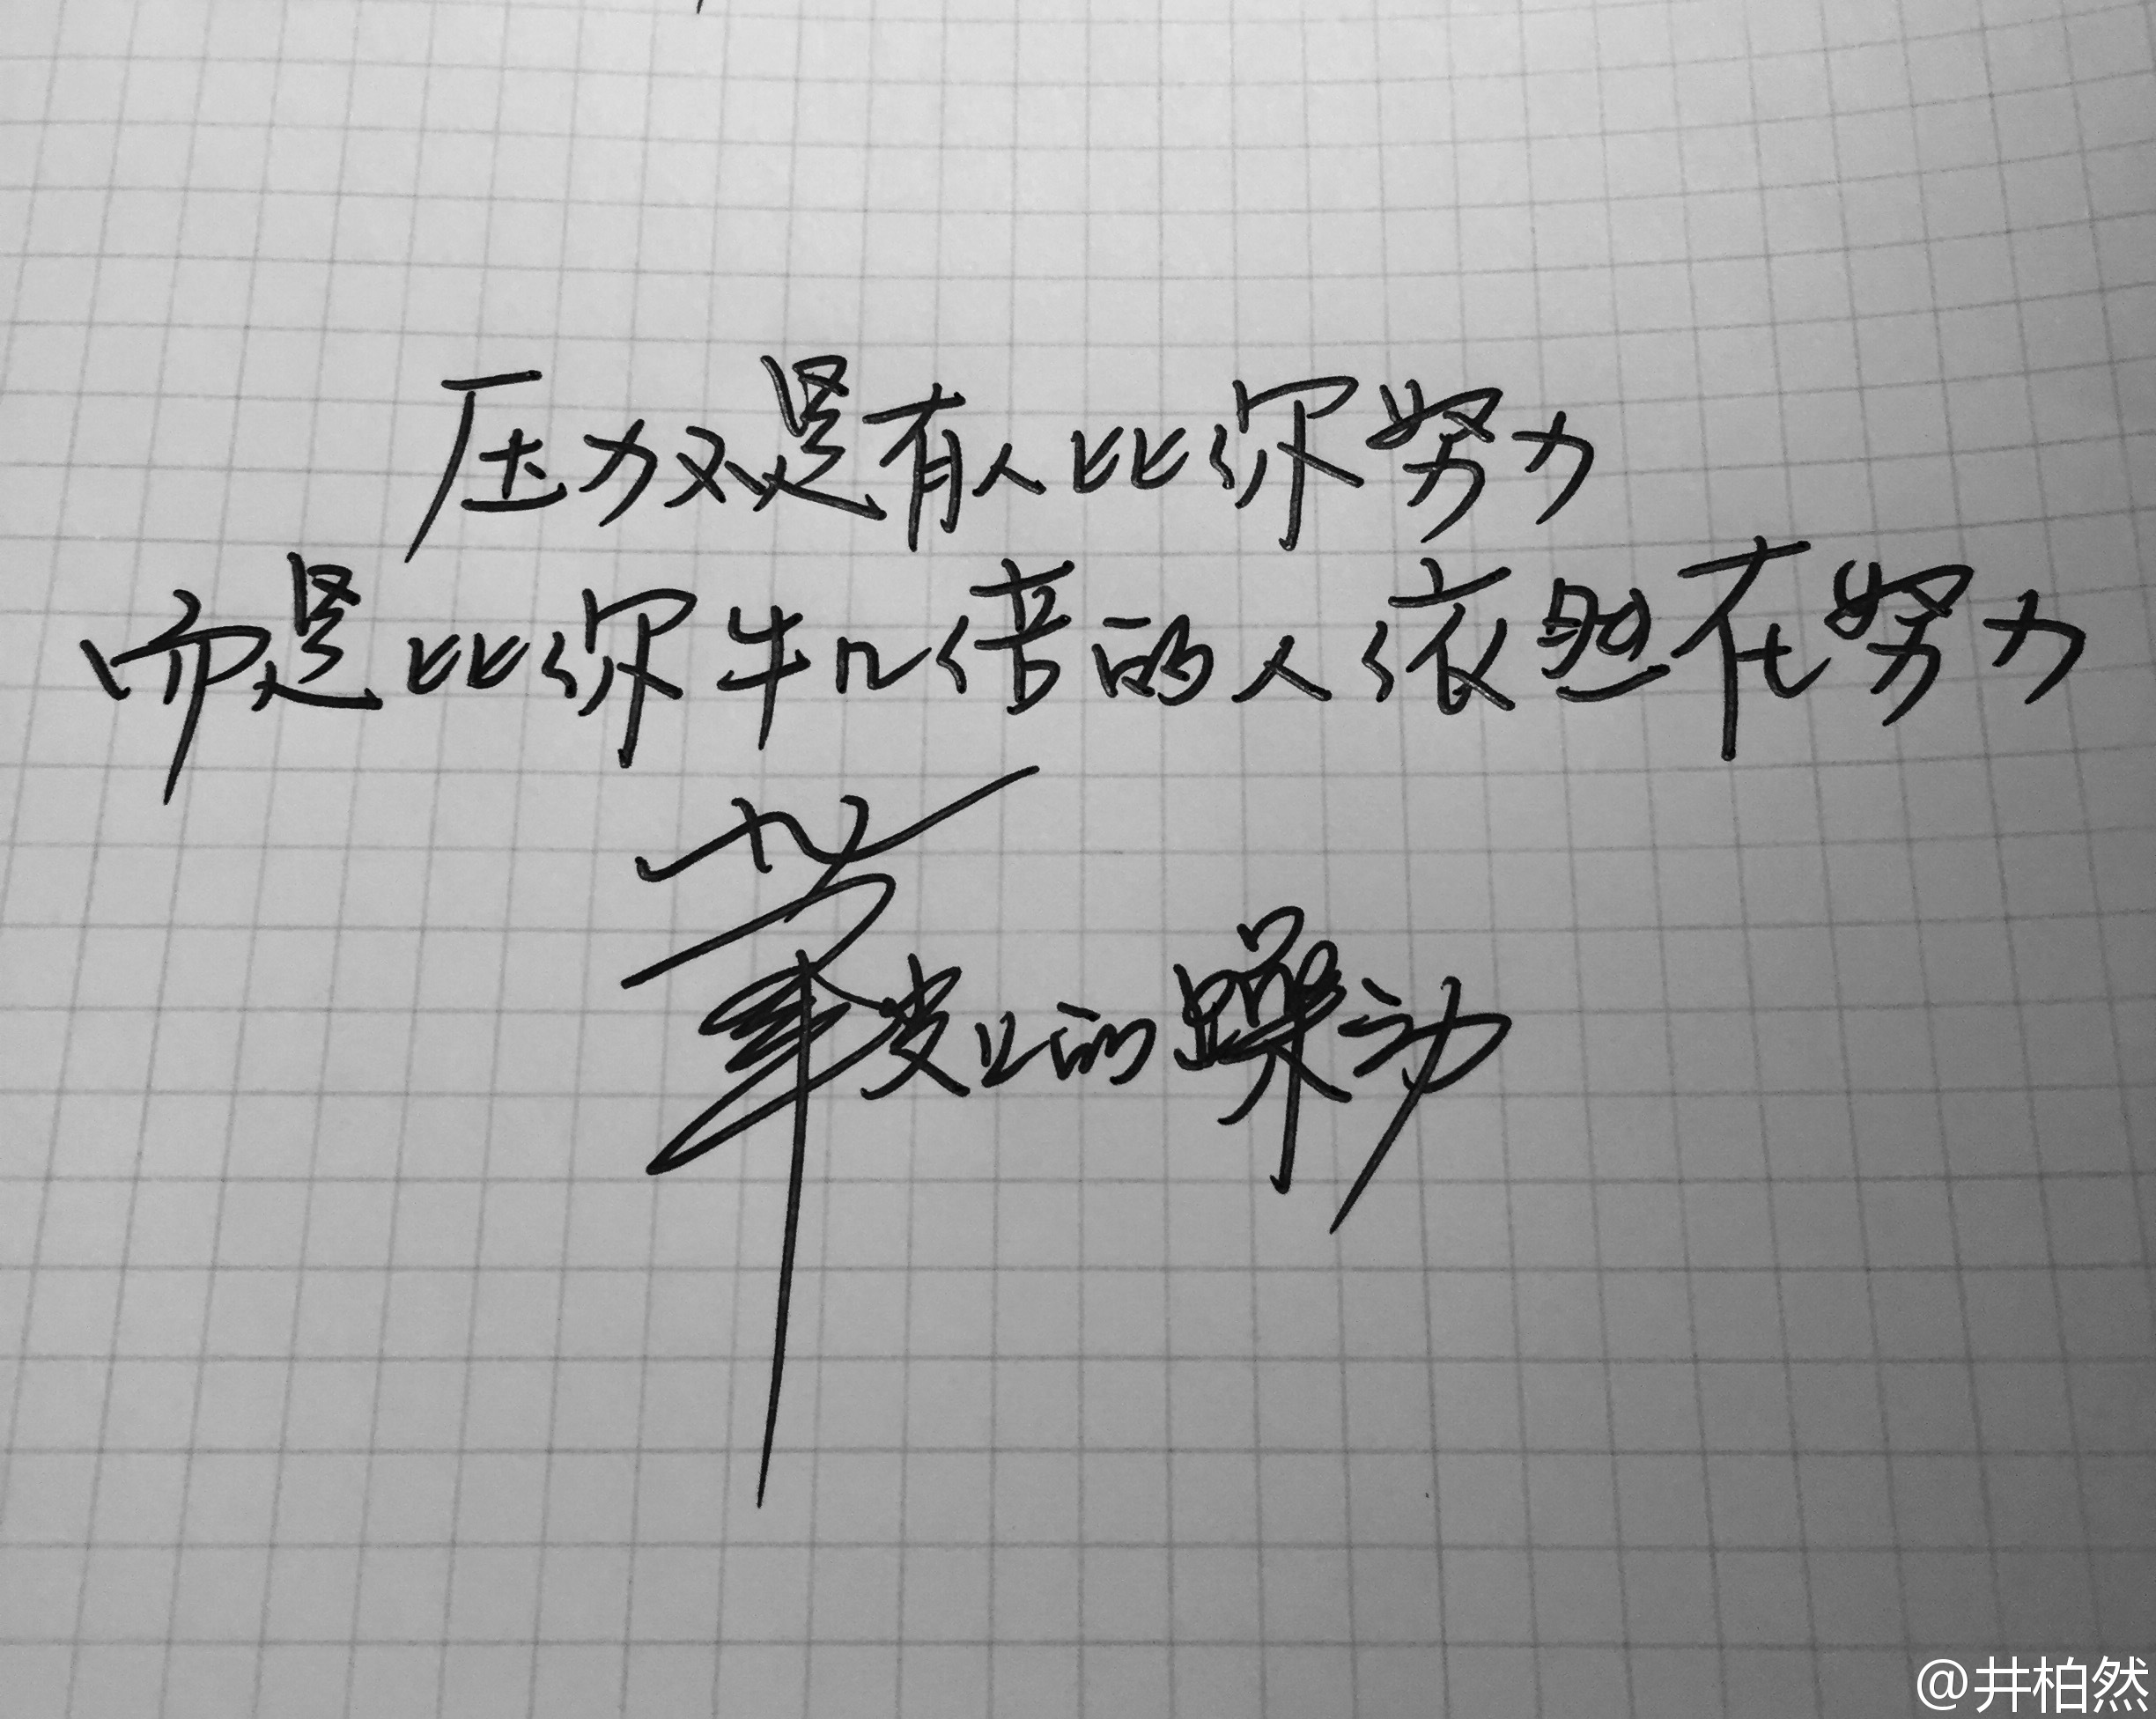 压力不是有人比你努力
而是比你牛几倍的人依然在努力
的躁动
@井柏然